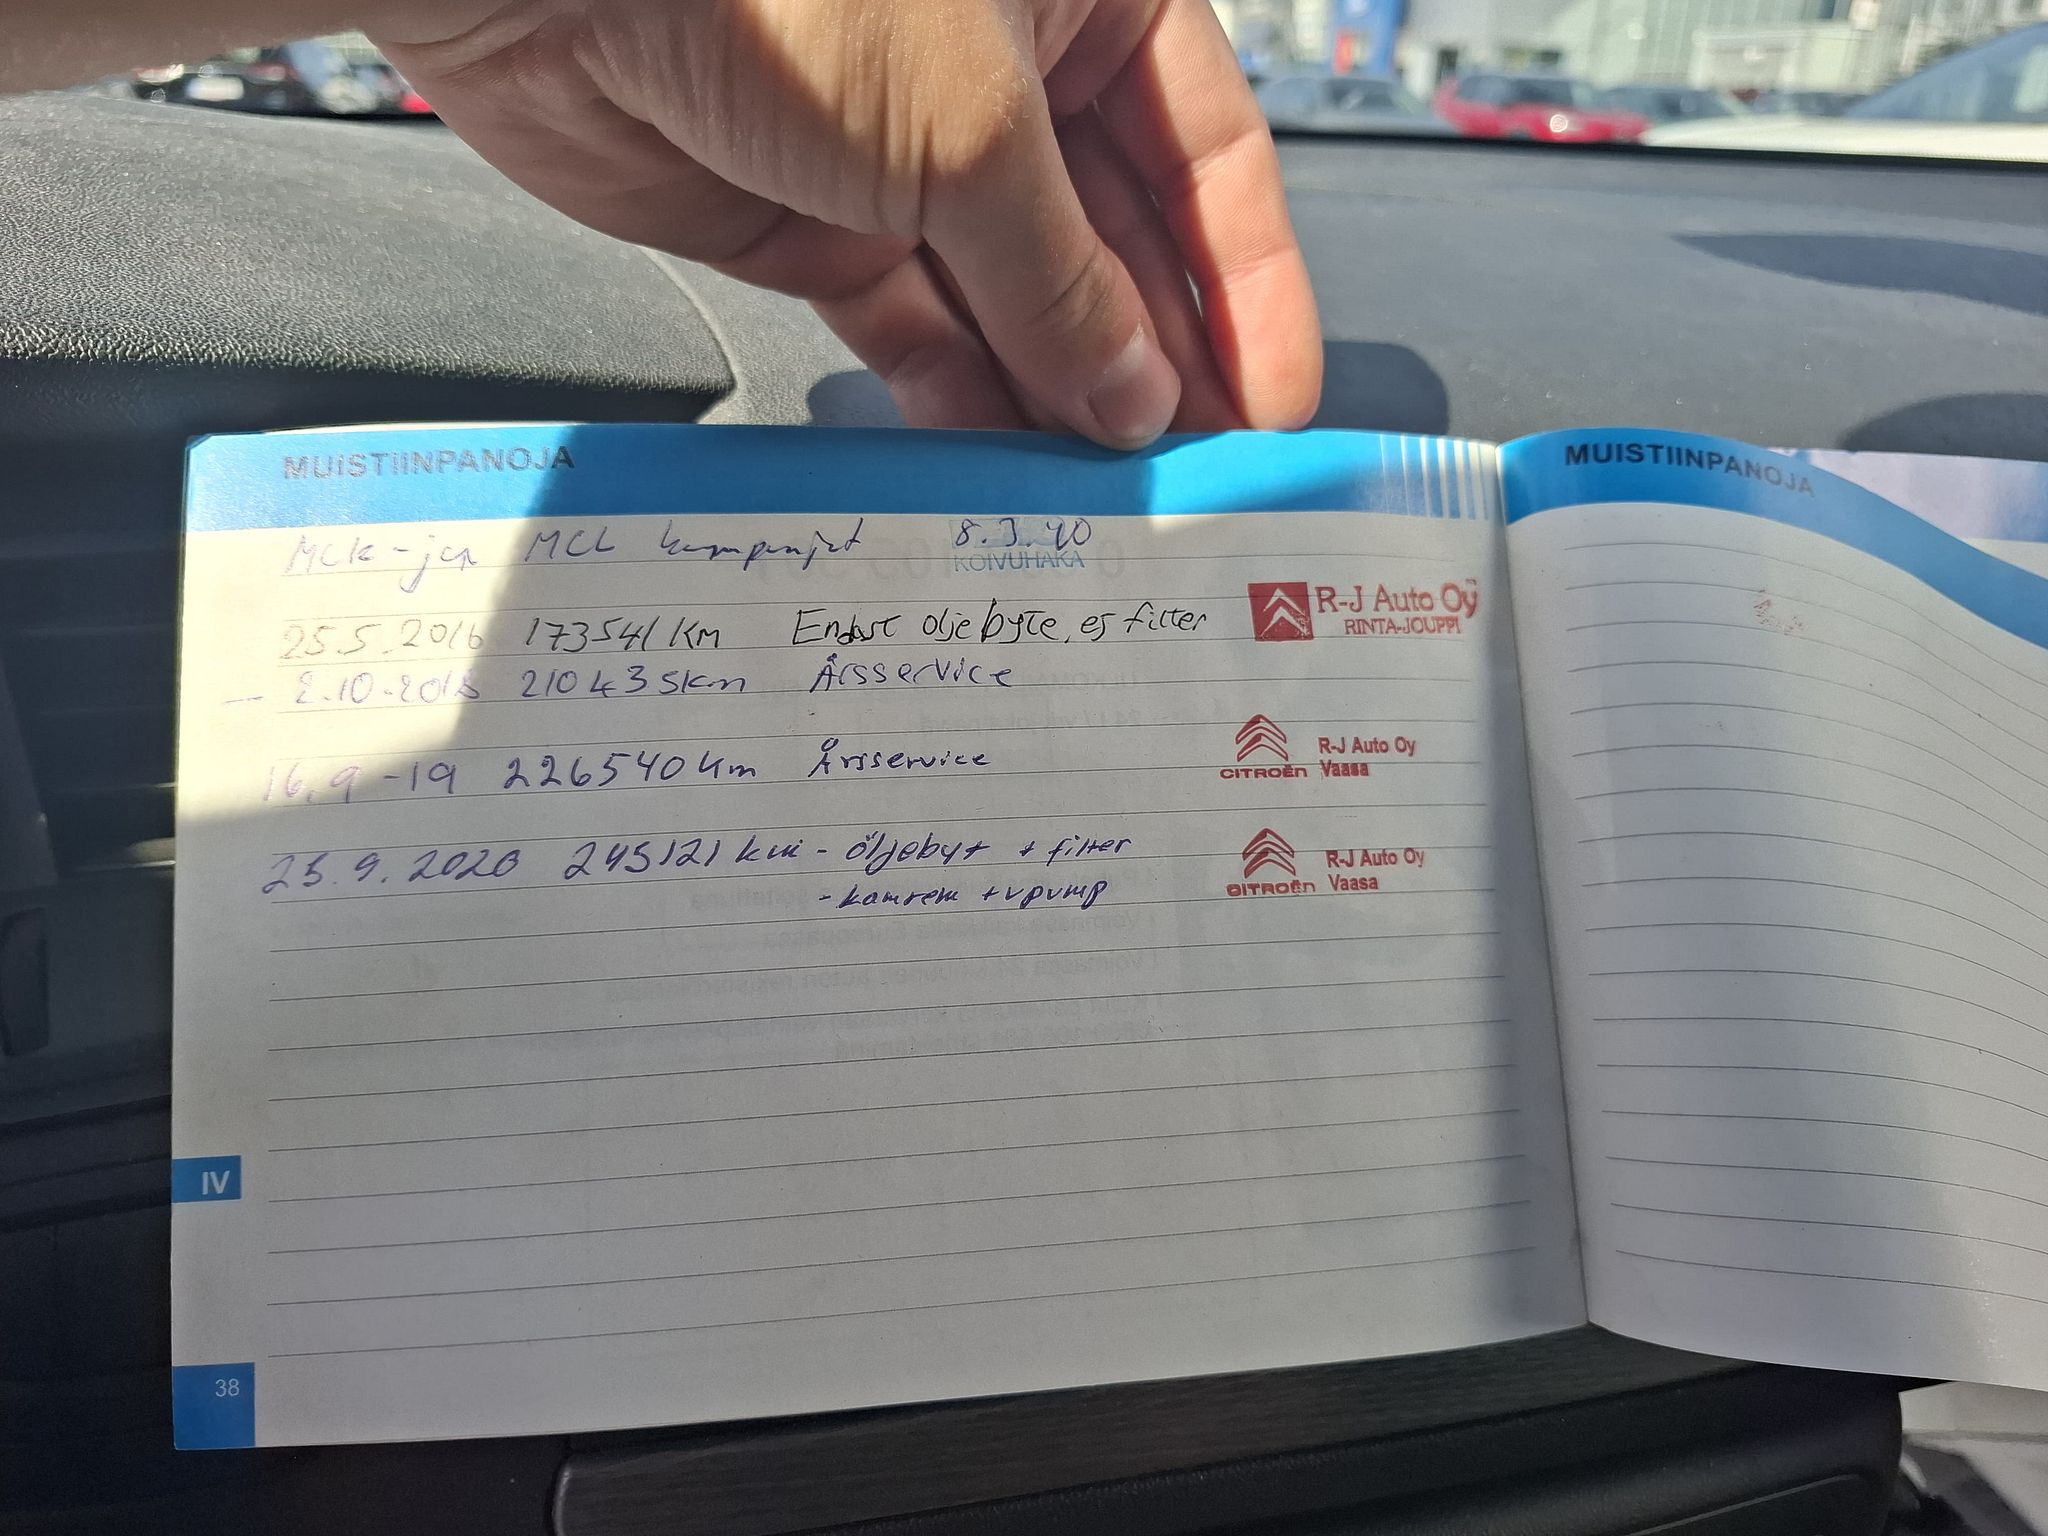 MUISTIINPANOJA
MCK-jen MCL kampanjat 8.3.10
KOIVUHAKA
25.5.2016 173541 KM Endast oljebyte, ej filter R-J Auto Oy
RINTA-JOUPPI
- 2.10-2018 210435km Årsservice
16.9-19 226540 km Årsservice CITROËN R-J Auto Oy
Vaasa
25.9.2020 245121 km - öljebyt + filter CITROËN R-J Auto Oy
- kamrem + vpump Vaasa
IV
38
MUISTIINPANOJA